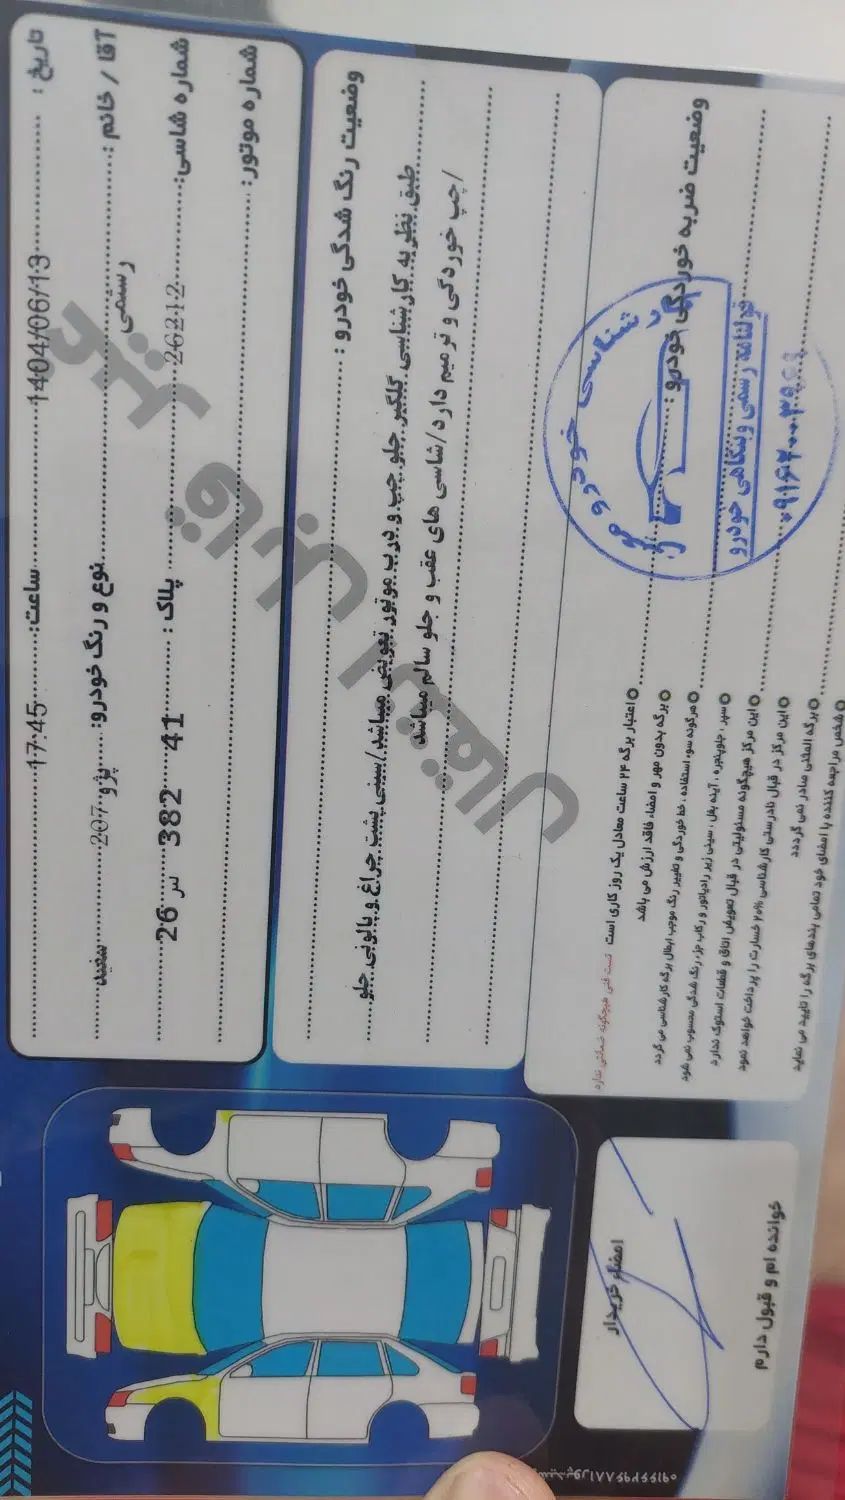 تاریخ : 1404/06/13 ساعت: 17:45
آقا / خانم : رستمی نوع و رنگ خودرو: پژو 207 سفید
شماره شاسی: 26212 پلاک : 41 382 س 26
شماره موتور:
وضعیت رنگ شدگی خودرو :
طبق نظریه کارشناسی گلگیر جلو چپ و درب موتور تعویض میباشد/سینی پشت چراغ و پالونی جلو
/چپ خوردگی و ترمیم دارد/شاسی های عقب و جلو سالم میباشد
وضعیت ضربه خوردگی خودرو :
کارشناسی خودرو
قولنامه رسمی و بنگاهی خودرو
اعتبار برگه ۲۴ ساعت معادل یک روز کاری است تست فنی هیچگونه ضمانتی ندارد
برگه بدون مهر و امضاء فاقد ارزش می باشد
هرگونه سوء استفاده ، خط خوردگی و تغییر رنگ موجب ابطال برگه کارشناسی می گردد
سپر ، جلوپنجره ، آینه بغل ، سینی زیر رادیاتور و رکاب جزء رنگ شدگی محسوب نمی شود
این مرکز هیچگونه مسئولیتی در قبال تعویض اتاق و قطعات استوک ندارد
این مرکز در قبال نادرستی کارشناسی ۲۰% خسارت را پرداخت خواهد نمود
برگه المثنی صادر نمی گردد
شخص مراجعه کننده با امضای خود تمامی بندهای برگه را تایید می نماید
خوانده ام و قبول دارم
امضاء خریدار